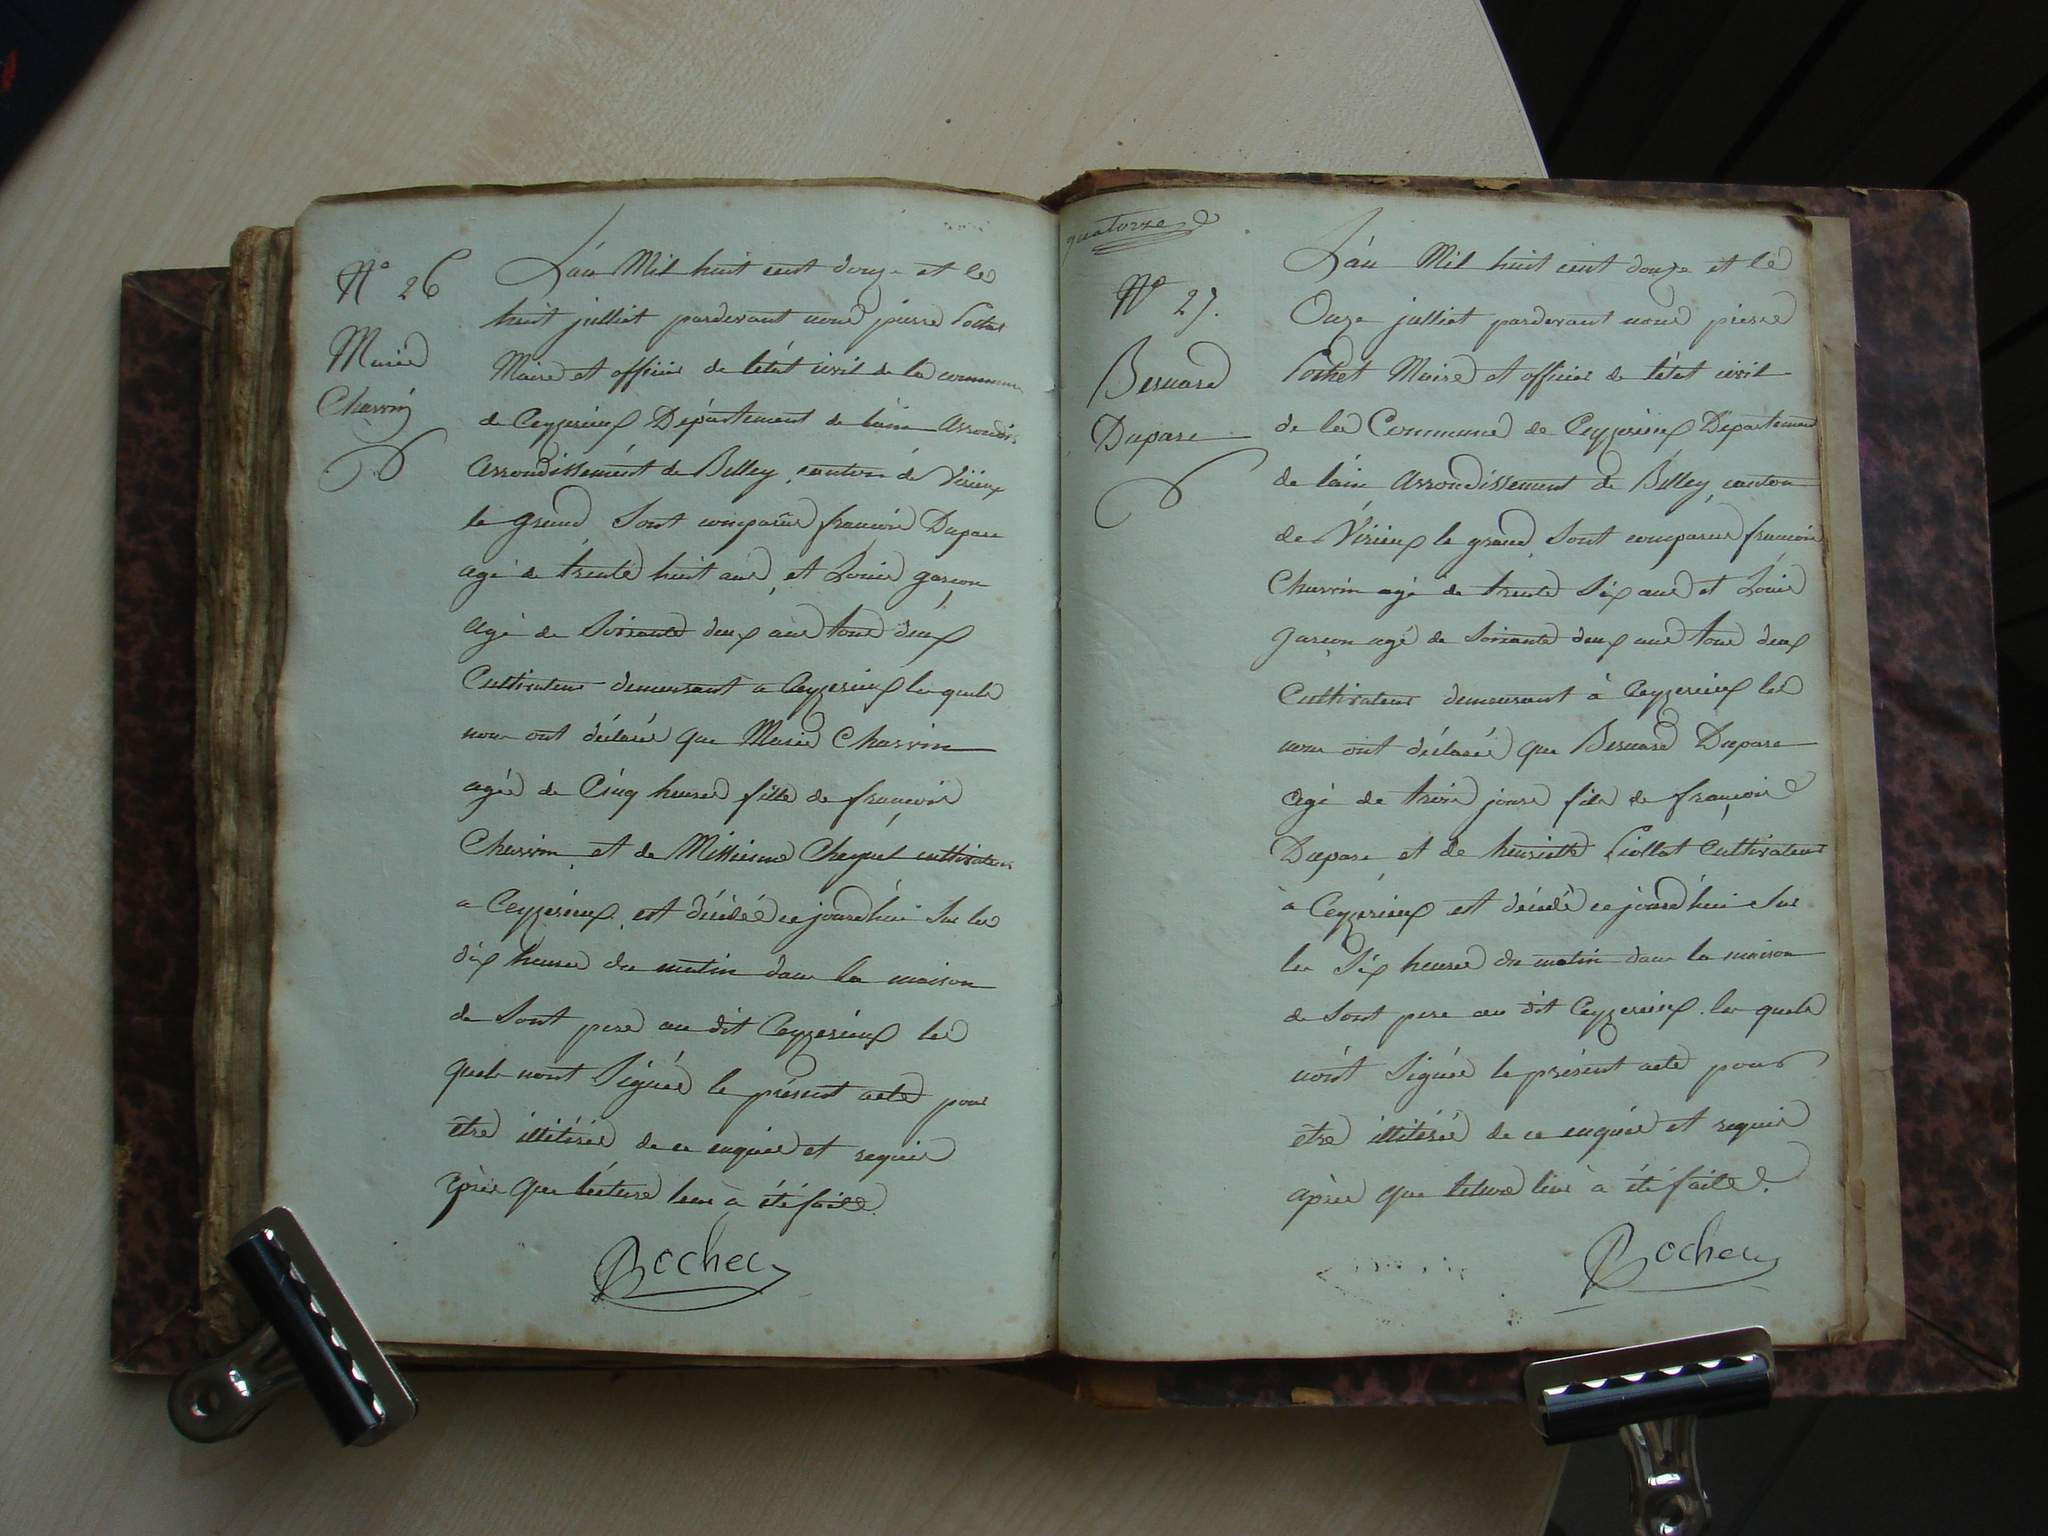 N° 26
Marie
Charvin
L'an Mil huit cent douze et le
huit julliet pardevant nous pierre Rochet
Maire et officier de l'état civil de la commune
de Ceyzerieux Département de lain Arrondis
Arrondissement de Belley, canton de Virieux
le grand Sont comparus francois Dupare
agé de trente huit ans, et Louis garçon
agé de Soixante deux ans tous deux
Cultivateurs demeurant a Ceyzerieux les quels
nous ont déclarés que Marie Charvin
agée de Cinq heures fille de francois
Charvin et de Cheynel cultivateurs
a Ceyzerieux, est décédée ce jourdhui Sur les
dix heures du matin dans la maison
de Sont pere au dit Ceyzerieux les
quels nont Signés le présent acte pour
etre illitérés de ce enquis et requis
après que lécture leur à été faite.
Rochet
quatorze
N° 27.
Bernard
Dupare
L'an Mil huit cent douze et le
Onze julliet pardevant nous pierre
Rochet Maire et officier de l'état civil
de la Commune de Ceyzerieux Département
de lain Arrondissement de Belley, canton
de Virieux le grand, Sont comparus francois
Charvin agé de trente Six ans et Louis
garçon agé de Soixante deux ans tous deux
Cultivateurs demeurant à Ceyzerieux les
nous ont déclarés que Bernard Dupare
agé de trois jours fils de francois
Dupare et de henriette Cultivateurs
à Ceyzerieux est décédé ce jourd'hui Sur
les Six heures du matin dans la maison
de Sont pere au dit Ceyzerieux. les quels
nont Signés le présent acte pour
etre illitérés de ce enquis et requis
après que leture leur à été faite.
Rochet